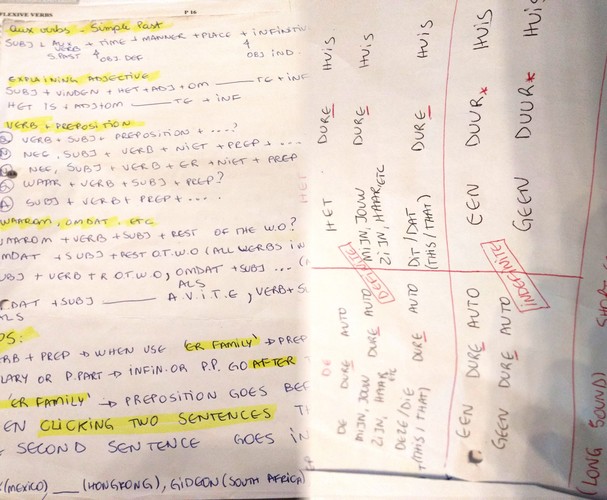 FLEXIVE VERBS P 16
Aux verbs - Simple Past
SUBJ + AUX VERB + TIME + MANNER + PLACE + INFINITIV
S.PAST OBJ. DEF OBJ IND.
EXPLAINING ADJECTIVE
SUBJ + VINDEN + HET + ADJ + OM ——— TE + INF
HET IS + ADJ + OM ——— TE + INF
VERB + PREPOSITION
VERB + SUBJ + PREPOSITION + ....?
NEE, SUBJ + VERB + NIET + PREP + ...
NEE, SUBJ + VERB + ER + NIET + PREP
WAAR + VERB + SUBJ + PREP?
SUBJ + VERB + PREP + ....
WAAROM, OMDAT. ETC
AAROM + VERB + SUBJ + REST OF THE W.O?
MDAT + SUBJ + REST O.T.W.O (ALL VERBS IN
UBJ + VERB + R O.T.W.O, OMDAT + SUBJ ...
ALS
DAT + SUBJ ——— A.V.I.T.E, VERB + S
ALS
PS:
ERB + PREP → WHEN USE 'ER FAMILY' → PREP
LARY OR P.PART → INFIN. OR P.P. GO AFTER
'ER FAMILY' → PREPOSITION GOES BEF
EN CLICKING TWO SENTENCES TH
SECOND SENTENCE GOES IN
(MEXICO) __ (HONGKONG), GIDEON (SOUTH AFRICA)
HET
HET DURE HUIS
MIJN, JOUW DURE HUIS
ZIJN, HAAR ETC
DIT / DAT DURE HUIS
(THIS / THAT)
EEN DUUR* HUIS
GEEN DUUR* HUIS
DE
DE DURE AUTO
MIJN, JOUW DURE AUTO
ZIJN, HAAR ETC
DEFINITE
DEZE / DIE DURE AUTO
(THIS / THAT)
INDEFINITE
EEN DURE AUTO
GEEN DURE AUTO
(LONG SOUND) SHORT